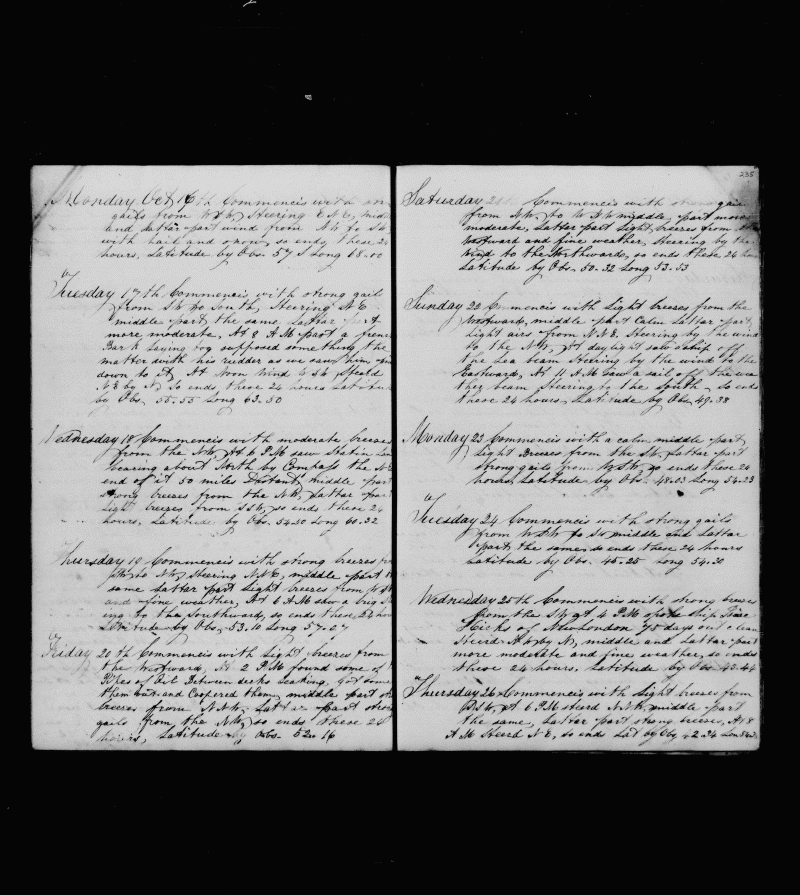 Monday Oct 16th Commencis with
gails from W S W, Steering E N E, midd
and Lattar part wind from N W to S W
with hail and snow, so ends these 24
hours, Latitude by Obs. 57 S Long 68.00
Tuesday 17th Commencis with strong gails
from S W to South, Steering N E
middle part the same, Lattar part
more moderate. At 8 A M past a
Bark Laying supposed something the
matter with his rudder as we saw him
down to it, At Noon Wind W S W Steard
N E by N, So ends, these 24 hours Latitude
by Obs. 55.55 Long 63.50
Wednesday 18 Commencis with moderate breeses
from the N W, At 6 P M saw Statin
bearing about North by Compass the
end of it 50 miles Distant, middle part
strong breeses from the N W, Lattar part
Light breeses from S S W, so ends these 24
hours, Latitude by Obs. 54.50 Long 60.32
Thursday 19 Commencis with strong breeses
to N W, Steering N N E, middle part
same Latter part Light breeses from
and fine weather, At 6 A M saw a brig
to the Southward, so ends these 24 hours
Latitude by Obs, 53.10 Long 57.57
Friday 20th Commencis with Light breeses from
the Westward, At 2 P M found some of
Pipes of Oil Between decks Leaking, got some
them Out and Coopered them, middle part
breeses from N N W, Lattar part strong
gails from the N W, so ends these 24
hours, Latitude by Obs. 52.16
235
Saturday 21st Commencis with strong gails
from N W, to W N W middle, part more
moderate, Lattar part Light breeses from
Westward and fine weather, Steering by the
Wind to the Northward, so ends these 24 hours
Latitude by Obs. 50.32 Long 53.53
Sunday 22 Commencis with Light breeses from the
Westward, middle part Calm Lattar part
Light airs from N N E. Steering by the wind
to the N W, At daylight saw a ship off
the Lea beam Steering by the wind to the
Eastward, At 11 A M Saw a sail off the wea
ther beam Steering to the South, so ends
these 24 hours, Latitude by Obs. 49.38
Monday 23 Commencis with a calm middle part
Light Breeses from the S W, Lattar part
strong gails from W S W, so ends these 24
hours, Latitude by Obs. 48.03 Long 54.23
Tuesday 24 Commencis with strong gails
from W S W to S W middle and Lattar
part, the same, so ends these 24 hours
Latitude by Obs. 45.25 Long 54.30
Wednesday 25th Commencis with strong breeses
from the S W, at 4 P M spoke Ship
Hicks of New London 40 days out
Steerd N W by N, middle and Lattar part
more moderate and fine weather, so ends
these 24 hours, Latitude by Obs 43.44
Thursday 26 Commencis with Light breeses from
W S W, At 6 P M steerd N N W, middle part
the same, Lattar part strong breeses, At 8
A M Steerd N E, so ends Lat by Obs 42.34